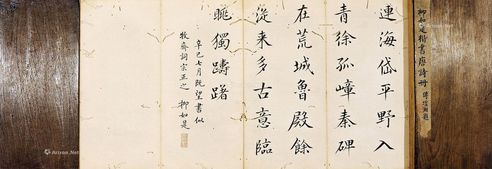 柳如是楷書唐詩冊
連海岱平野入
青徐孤嶂秦碑
在荒城魯殿餘
從来多古意臨
眺獨躊躇
辛巳七月既望書似
牧齋詞宗正之 柳如是
Artron.Net